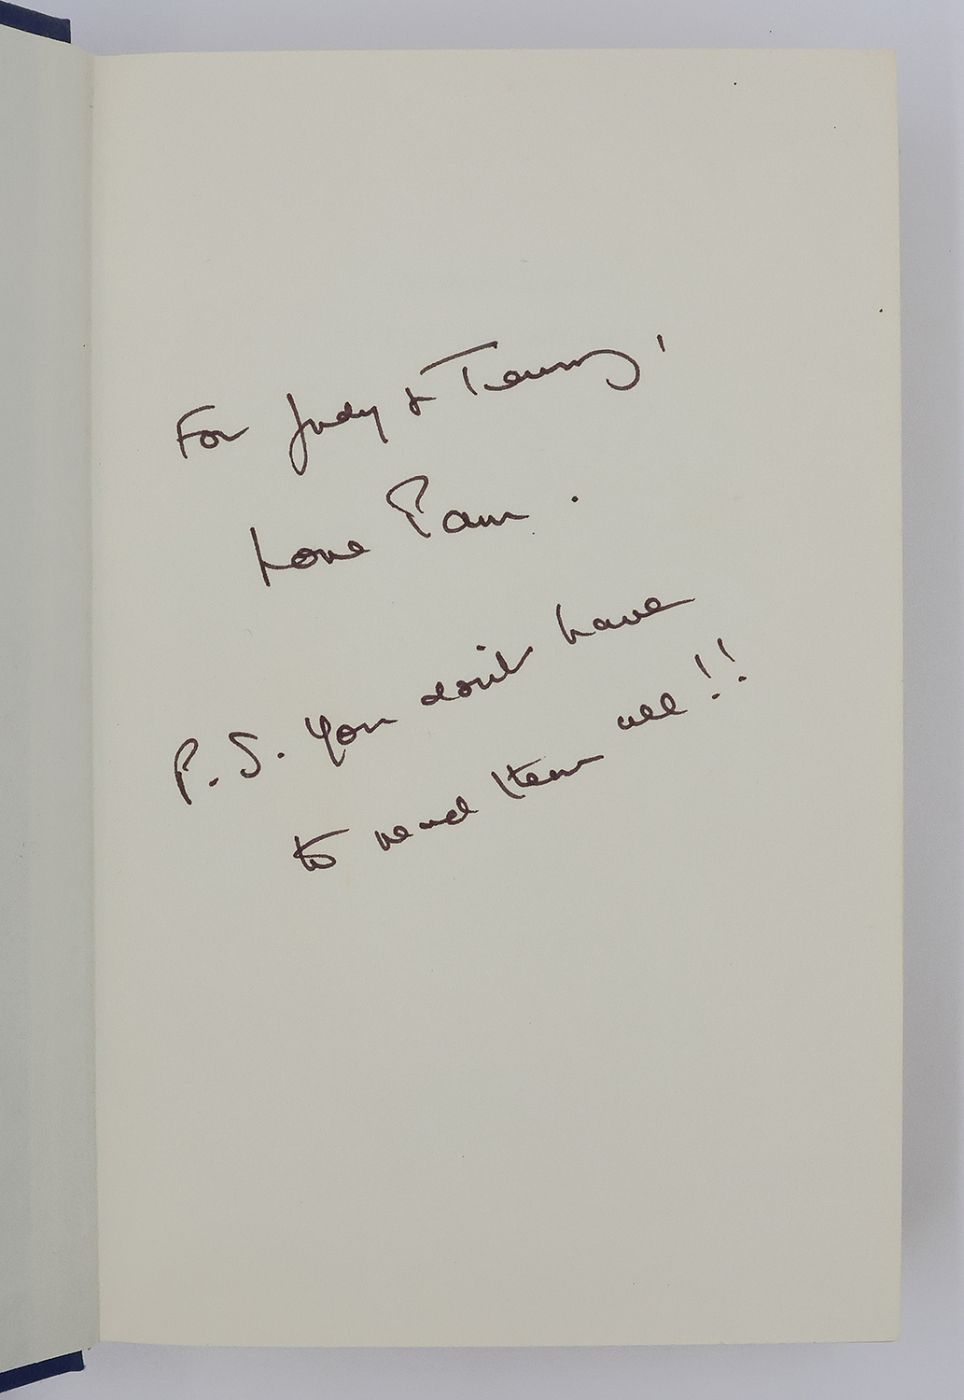 For Judy & Tommy!
Love Pam.
P.S. You don't have
to read them all!!